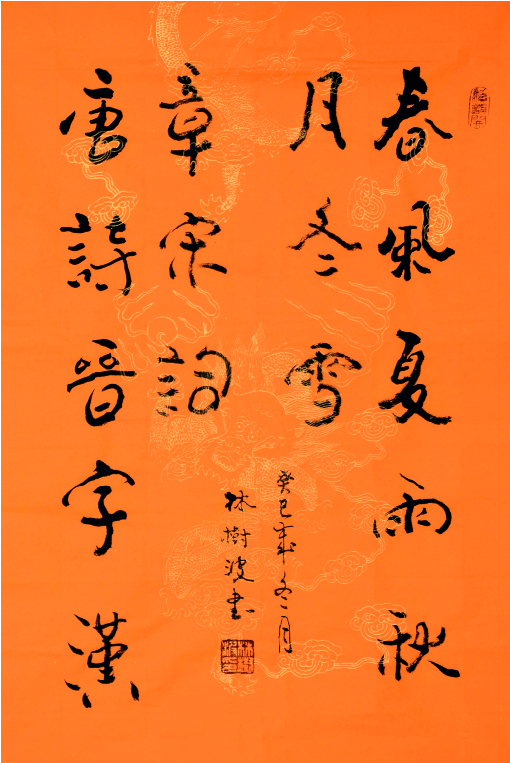 春風夏雨秋
月冬雪
唐詩晉字漢
章宋詞
癸巳歲冬月
林樹波書